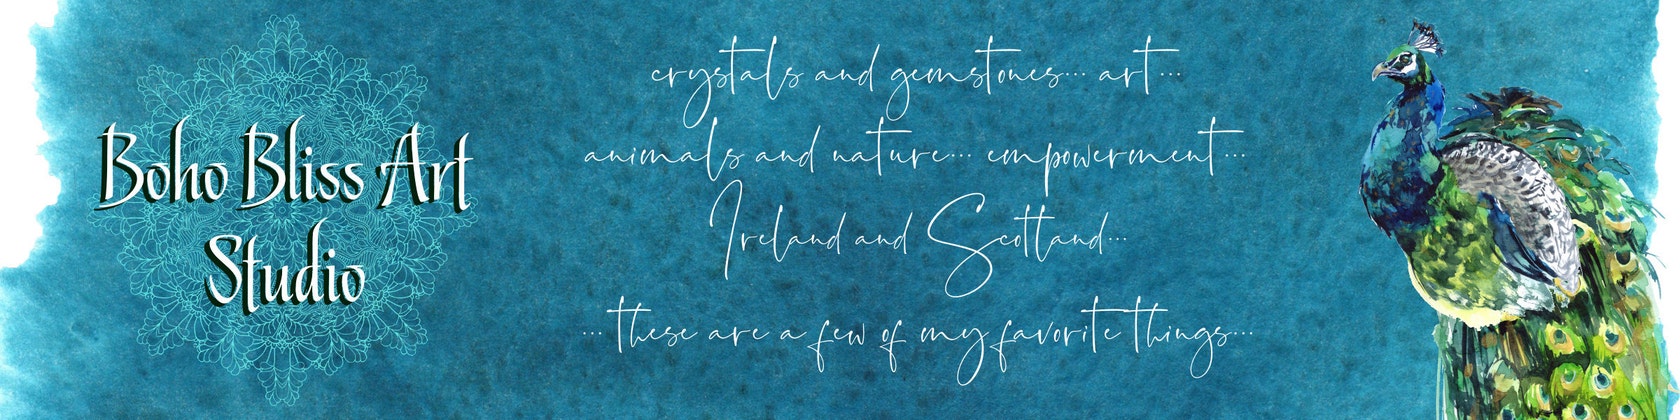 Boho Bliss Art
Studio
crystals and gemstones... art...
animals and nature... empowerment...
Ireland and Scotland...
... these are a few of my favorite things...